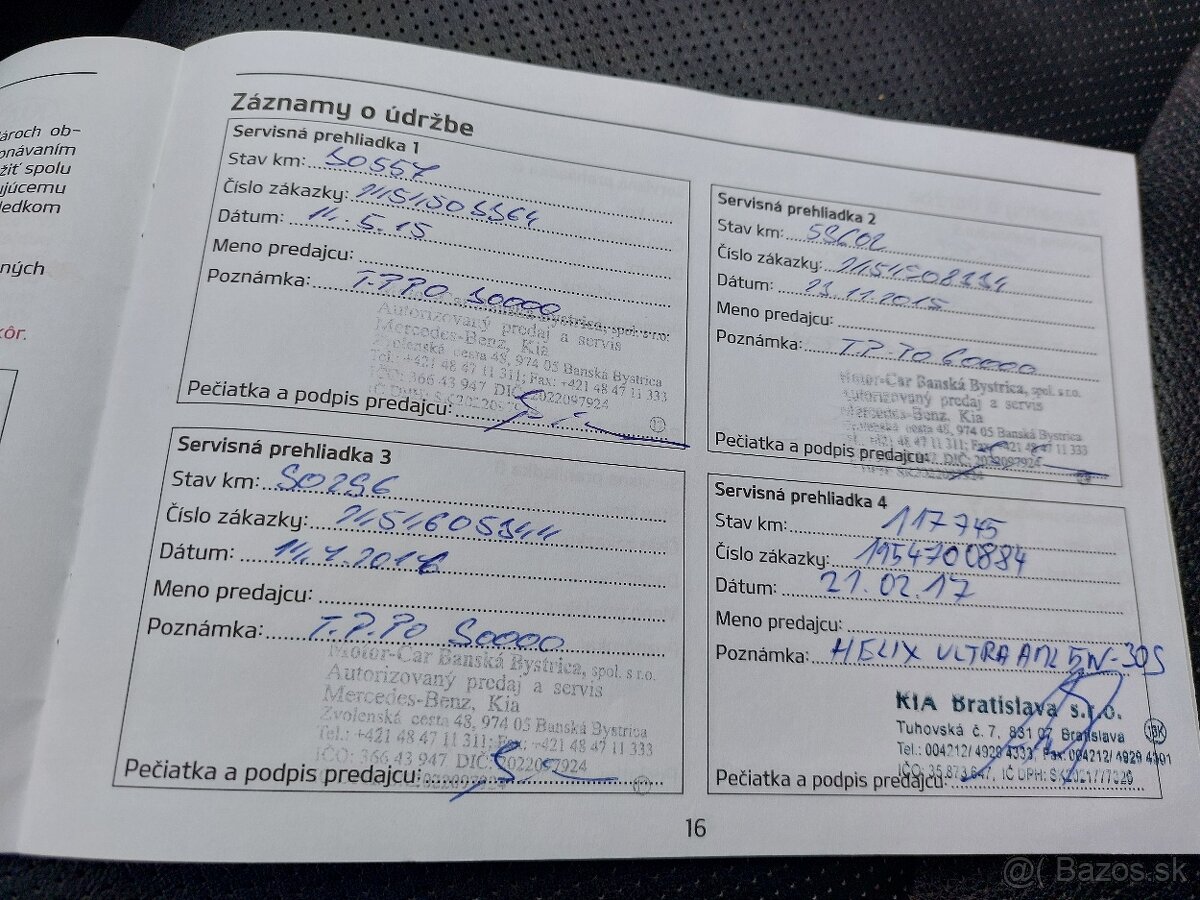 ároch ob-
onávaním
žiť spolu
ujúcemu
ledkom
ných
kôr.
Záznamy o údržbe
Servisná prehliadka 1
Stav km: 30557
Číslo zákazky:
Dátum: 14.5.15
Meno predajcu:
Poznámka: T.P.PO 30000
Banská Bystrica, spol. s r.o.
Autorizovaný predaj a servis
Mercedes-Benz, Kia
Zvolenská cesta 48, 974 05 Banská Bystrica
Tel.: +421 48 47 11 311; Fax: +421 48 47 11 333
IČO: 366 43 947 DIČ: 2022097924
Pečiatka a podpis predajcu:
Servisná prehliadka 2
Stav km:
Číslo zákazky:
Dátum: 23.11.2015
Meno predajcu:
Poznámka: T.P.PO 60000
Motor-Car Banská Bystrica, spol. s r.o.
Autorizovaný predaj a servis
Mercedes-Benz, Kia
Zvolenská cesta 48, 974 05 Banská Bystrica
Tel.: +421 48 47 11 311; Fax: +421 48 47 11 333
DIČ: 2022097924
Pečiatka a podpis predajcu:
Servisná prehliadka 3
Stav km: 90296
Číslo zákazky:
Dátum: 14.7.2016
Meno predajcu:
Poznámka: T.P.PO 90000
Motor-Car Banská Bystrica, spol. s r.o.
Autorizovaný predaj a servis
Mercedes-Benz, Kia
Zvolenská cesta 48, 974 05 Banská Bystrica
Tel.: +421 48 47 11 311; Fax: +421 48 47 11 333
IČO: 366 43 947 DIČ: 2022097924
Pečiatka a podpis predajcu:
Servisná prehliadka 4
Stav km: 117745
Číslo zákazky: 1954700884
Dátum: 21.02.17
Meno predajcu:
Poznámka: HELIX ULTRA 5W-30
KIA Bratislava s.r.o.
Tuhovská č. 7, 831 07 Bratislava
Tel.: 004212/4929 4333, Fax: 004212/4929 4301
IČO: 35 873 647, IČ DPH:
Pečiatka a podpis predajcu:
16
@( Bazos.sk